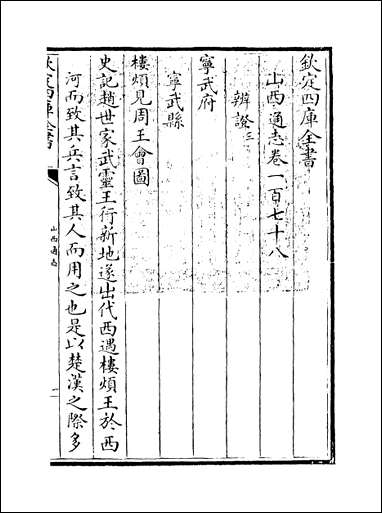 欽定四庫全書
山西通志卷一百七十八
辨證三
寧武府
寧武縣
樓煩見周王會圖
史記趙世家武靈王行新地遂出代西遇樓煩王於西
河而致其兵言致其人而用之也是以楚漢之際多
山西通志